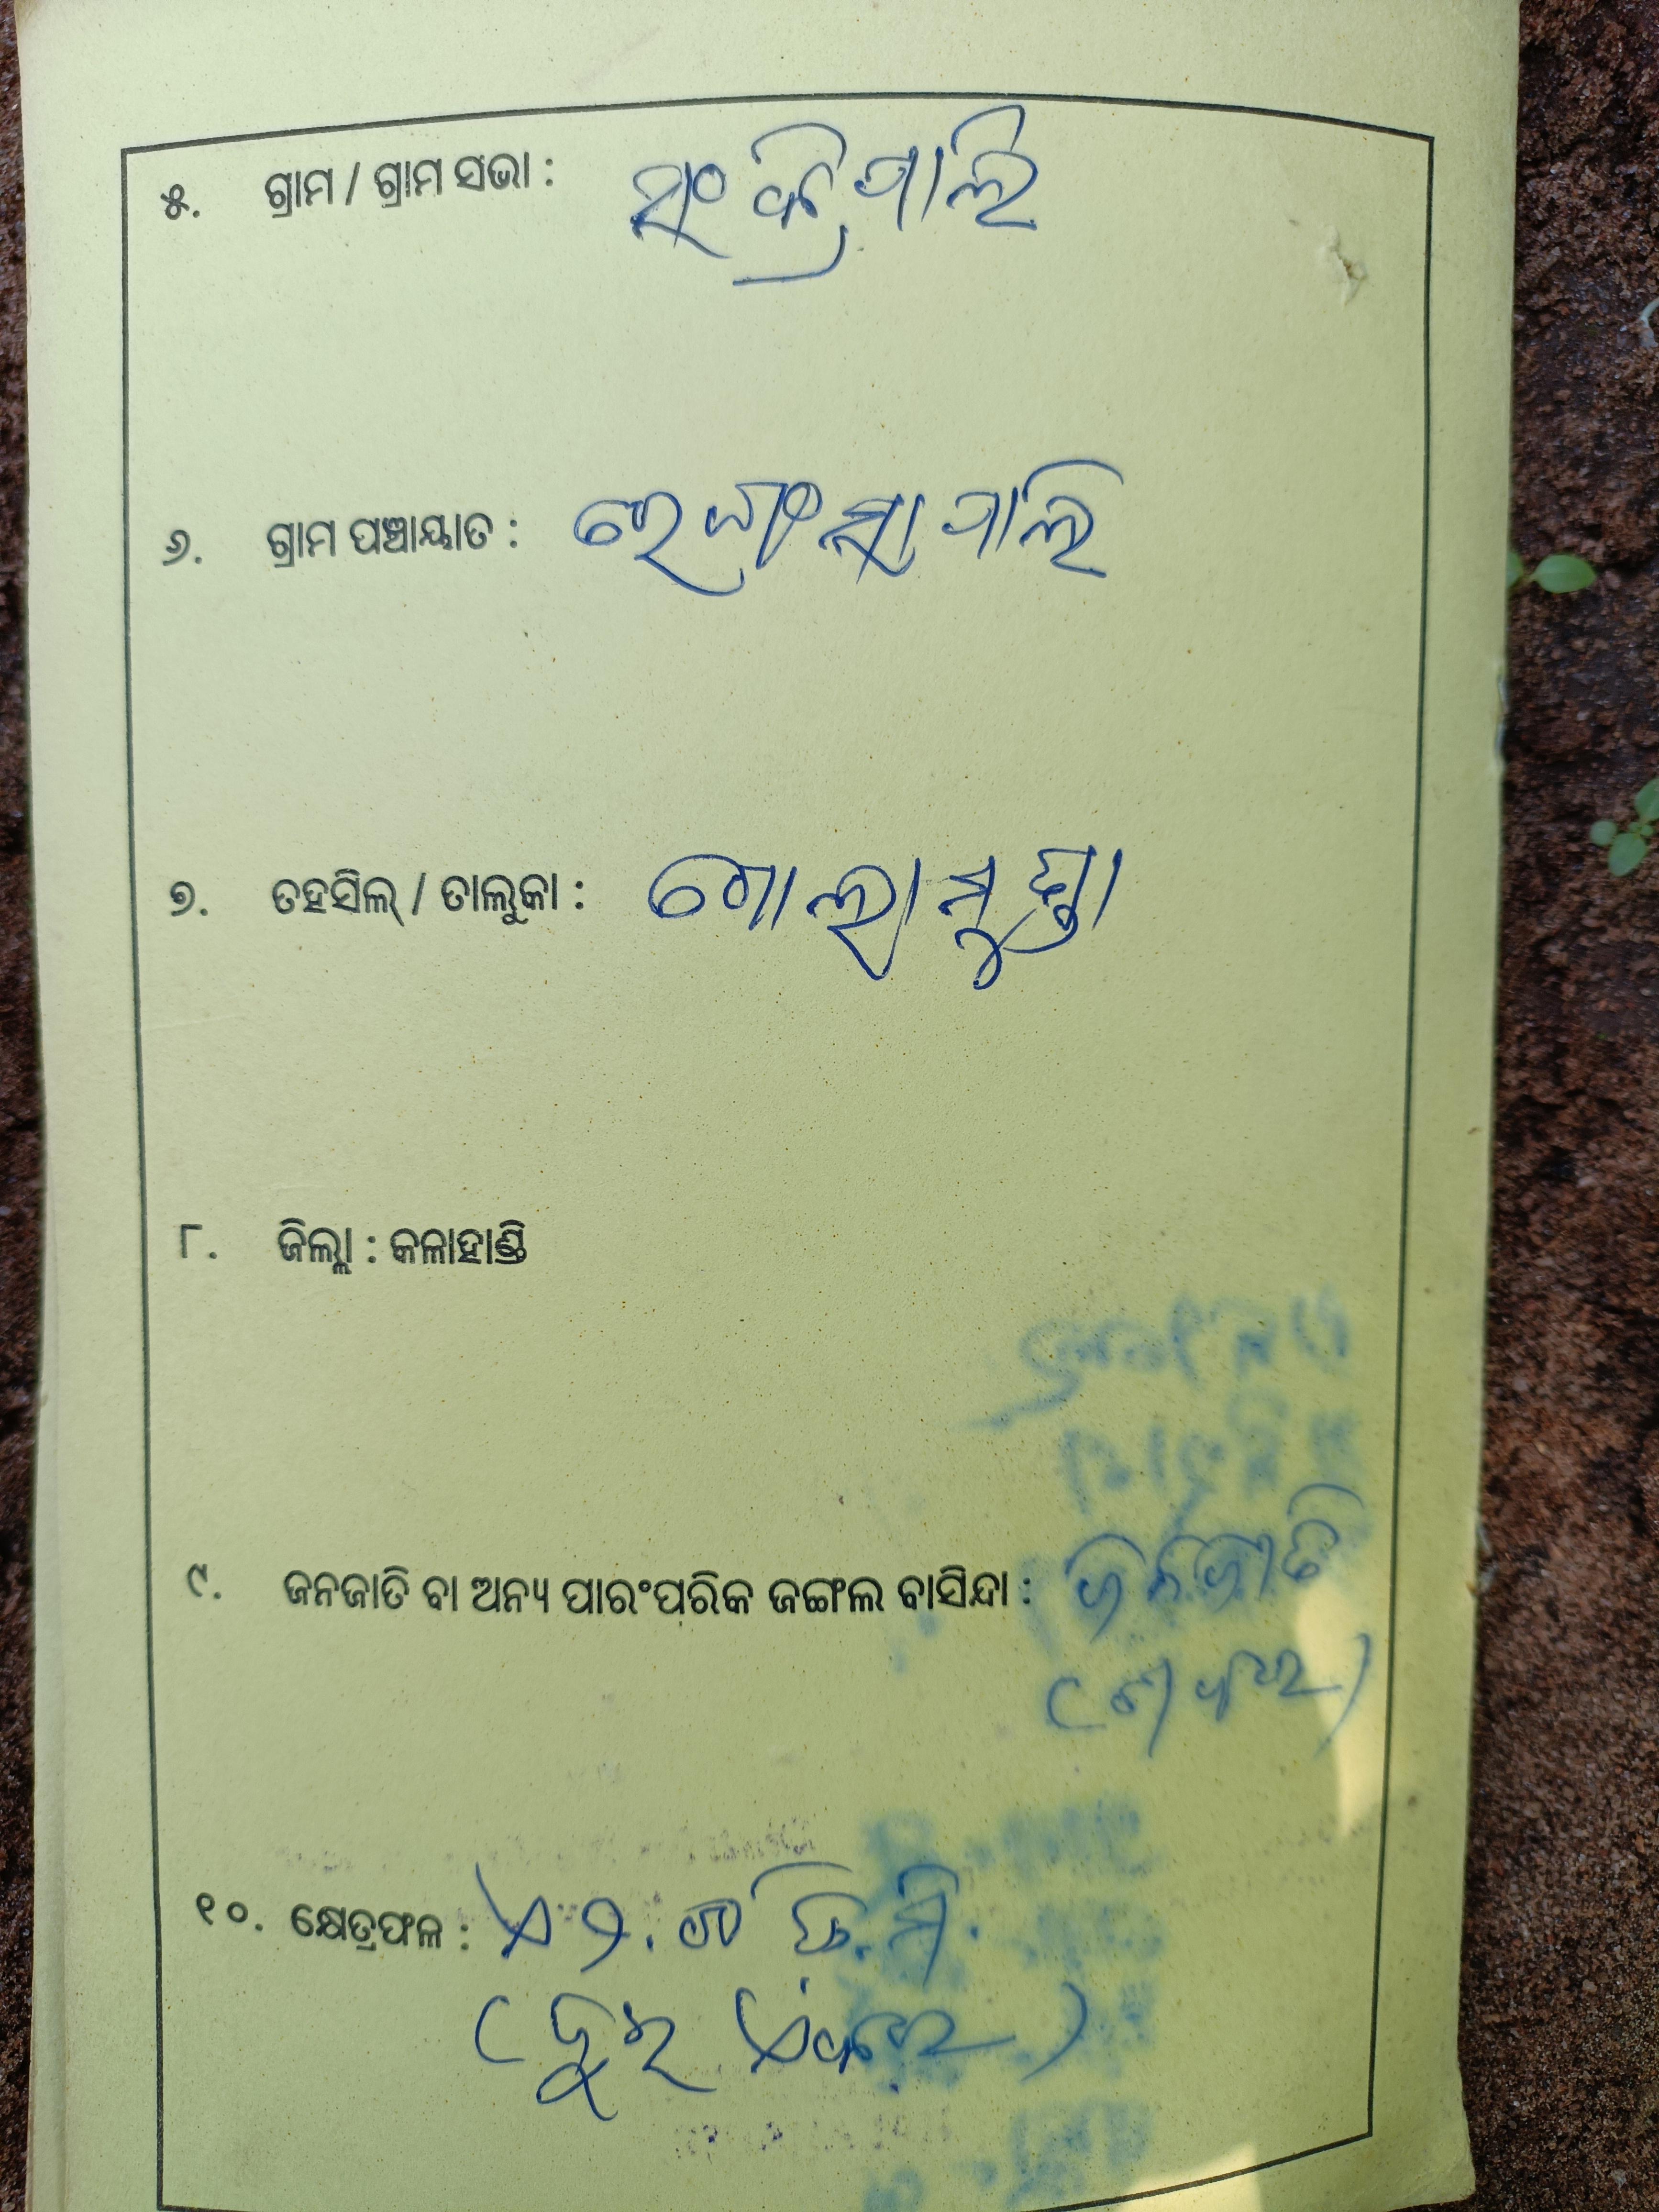 ୫. ଗ୍ରାମ / ଗ୍ରାମ ସଭା : ସଂକ୍ରିପାଲି
୬. ଗ୍ରାମ ପଞ୍ଚାୟାତ :
୭. ତହସିଲ୍ / ତାଲୁକା : ଗୋଲାମୁଣ୍ଡା
୮. ଜିଲ୍ଲା : କଳାହାଣ୍ଡି
୯. ଜନଜାତି ବା ଅନ୍ୟ ପାରଂପରିକ ଜଙ୍ଗଲ ବାସିନ୍ଦା : ଜନଜାତି
୧୦. କ୍ଷେତ୍ରଫଳ : ଏ ୨.୦୦ ଡି.ମି.
( ଦୁଇ ଏକର )